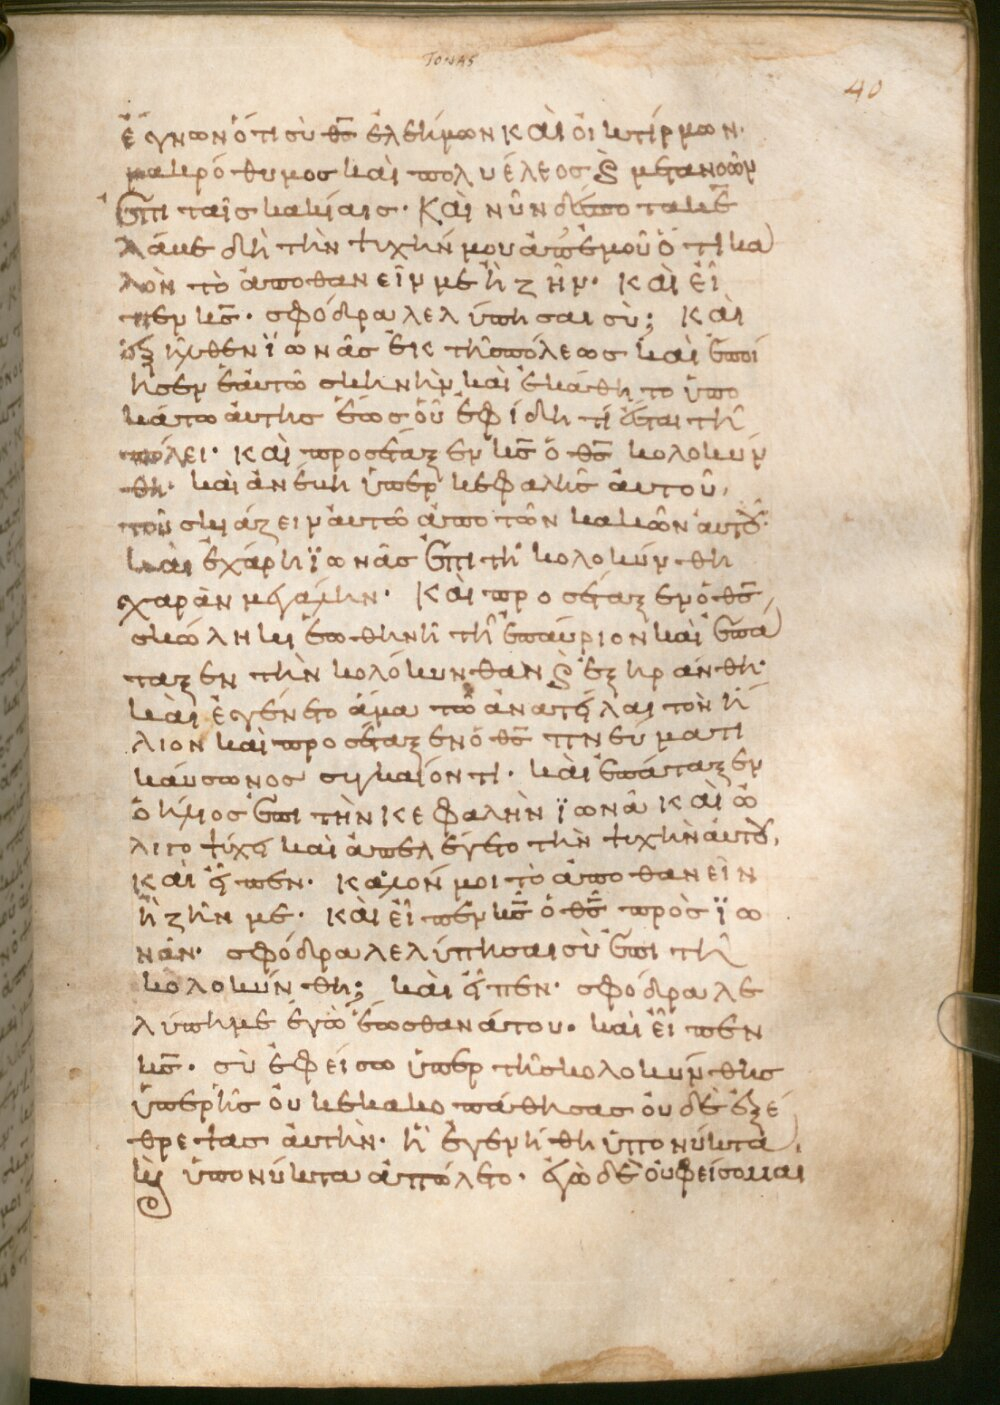 IONAS
40
ἔγνων ὅτι σὺ θς ἐλεήμων καὶ οἰκτίρμων·
μακρόθυμος καὶ πολυέλεος ϗ μετανοῶν
ἐπὶ ταῖς κακίαις· Καὶ νῦν δέσποτα κε
λάβε δὴ τὴν ψυχήν μου ἀπ' ἐμοῦ ὅτι κα
λὸν τὸ ἀποθανεῖν με ἢ ζῆν· καὶ εἶ
πεν κς· σφόδρα λελύπησαι σὺ; καὶ
ἐξῆλθεν ϊωνᾶς ἐκ τῆς πόλεως καὶ ἐποί
ησεν ἑαυτῶ σκηνὴν καὶ ἐκάθητο ὑπο
κάτω αὐτῆς ἕως οὗ ἐφίδη τί ἔσται τῆ
πόλει· καὶ προσέταξεν κς ὁ θς κολοκύν
θη· καὶ ἀνέβη ὑπὲρ κεφαλῆς αὐτοῦ,
τοῦ σκιάζειν αὐτῶ ἀπὸ τῶν κακῶν αὐτοῦ·
καὶ ἐχάρη ϊωνᾶς ἐπὶ τῆ κολοκύνθη
χαρὰν μεγάλην· Καὶ προσέταξεν ὁ θς,
σκώληκι ἑωθηνῆ τῆ ἐπαύριον καὶ ἐπά
ταξεν τὴν κολόκυνθαν ϗ ἐξηράνθη·
καὶ ἐγένετο ἅμα τῶ ἀνατεῖλαι τὸν ἥ
λιον καὶ προσέταξεν ὁ θς πνεύματι
καύσωνος συγκαίοντι· καὶ ἐπάταξεν
ὁ ἥλιος ἐπὶ τὴν κεφαλὴν ϊωνᾶ καὶ ὠ
λιγοψύχει καὶ ἀπελέγετο τὴν ψυχὴν αὐτοῦ,
καὶ εἶπεν· καλόν μοι τὸ ἀποθανεῖν
ἢ ζῆν με· καὶ εἶπεν κς ὁ θς πρὸς ϊω
νᾶν· σφόδρα λελύπησαι σὺ ἐπὶ τῆ
κολοκύνθη; καὶ εἶπεν· σφόδρα λε
λύπημε ἐγὼ ἕως θανάτου· καὶ εἶπεν
κς· σὺ ἐφείσω ὑπὲρ τῆς κολοκύνθης
ὑπὲρ ἧς οὐκ ἐκακοπάθησας οὐδὲ ἐξέ
θρεψας αὐτὴν· ἣ ἐγενήθη ὑπὸ νύκτα,
καὶ ὑπὸ νύκτα ἀπώλετο· ἐγὼ δὲ οὐ φείσομαι